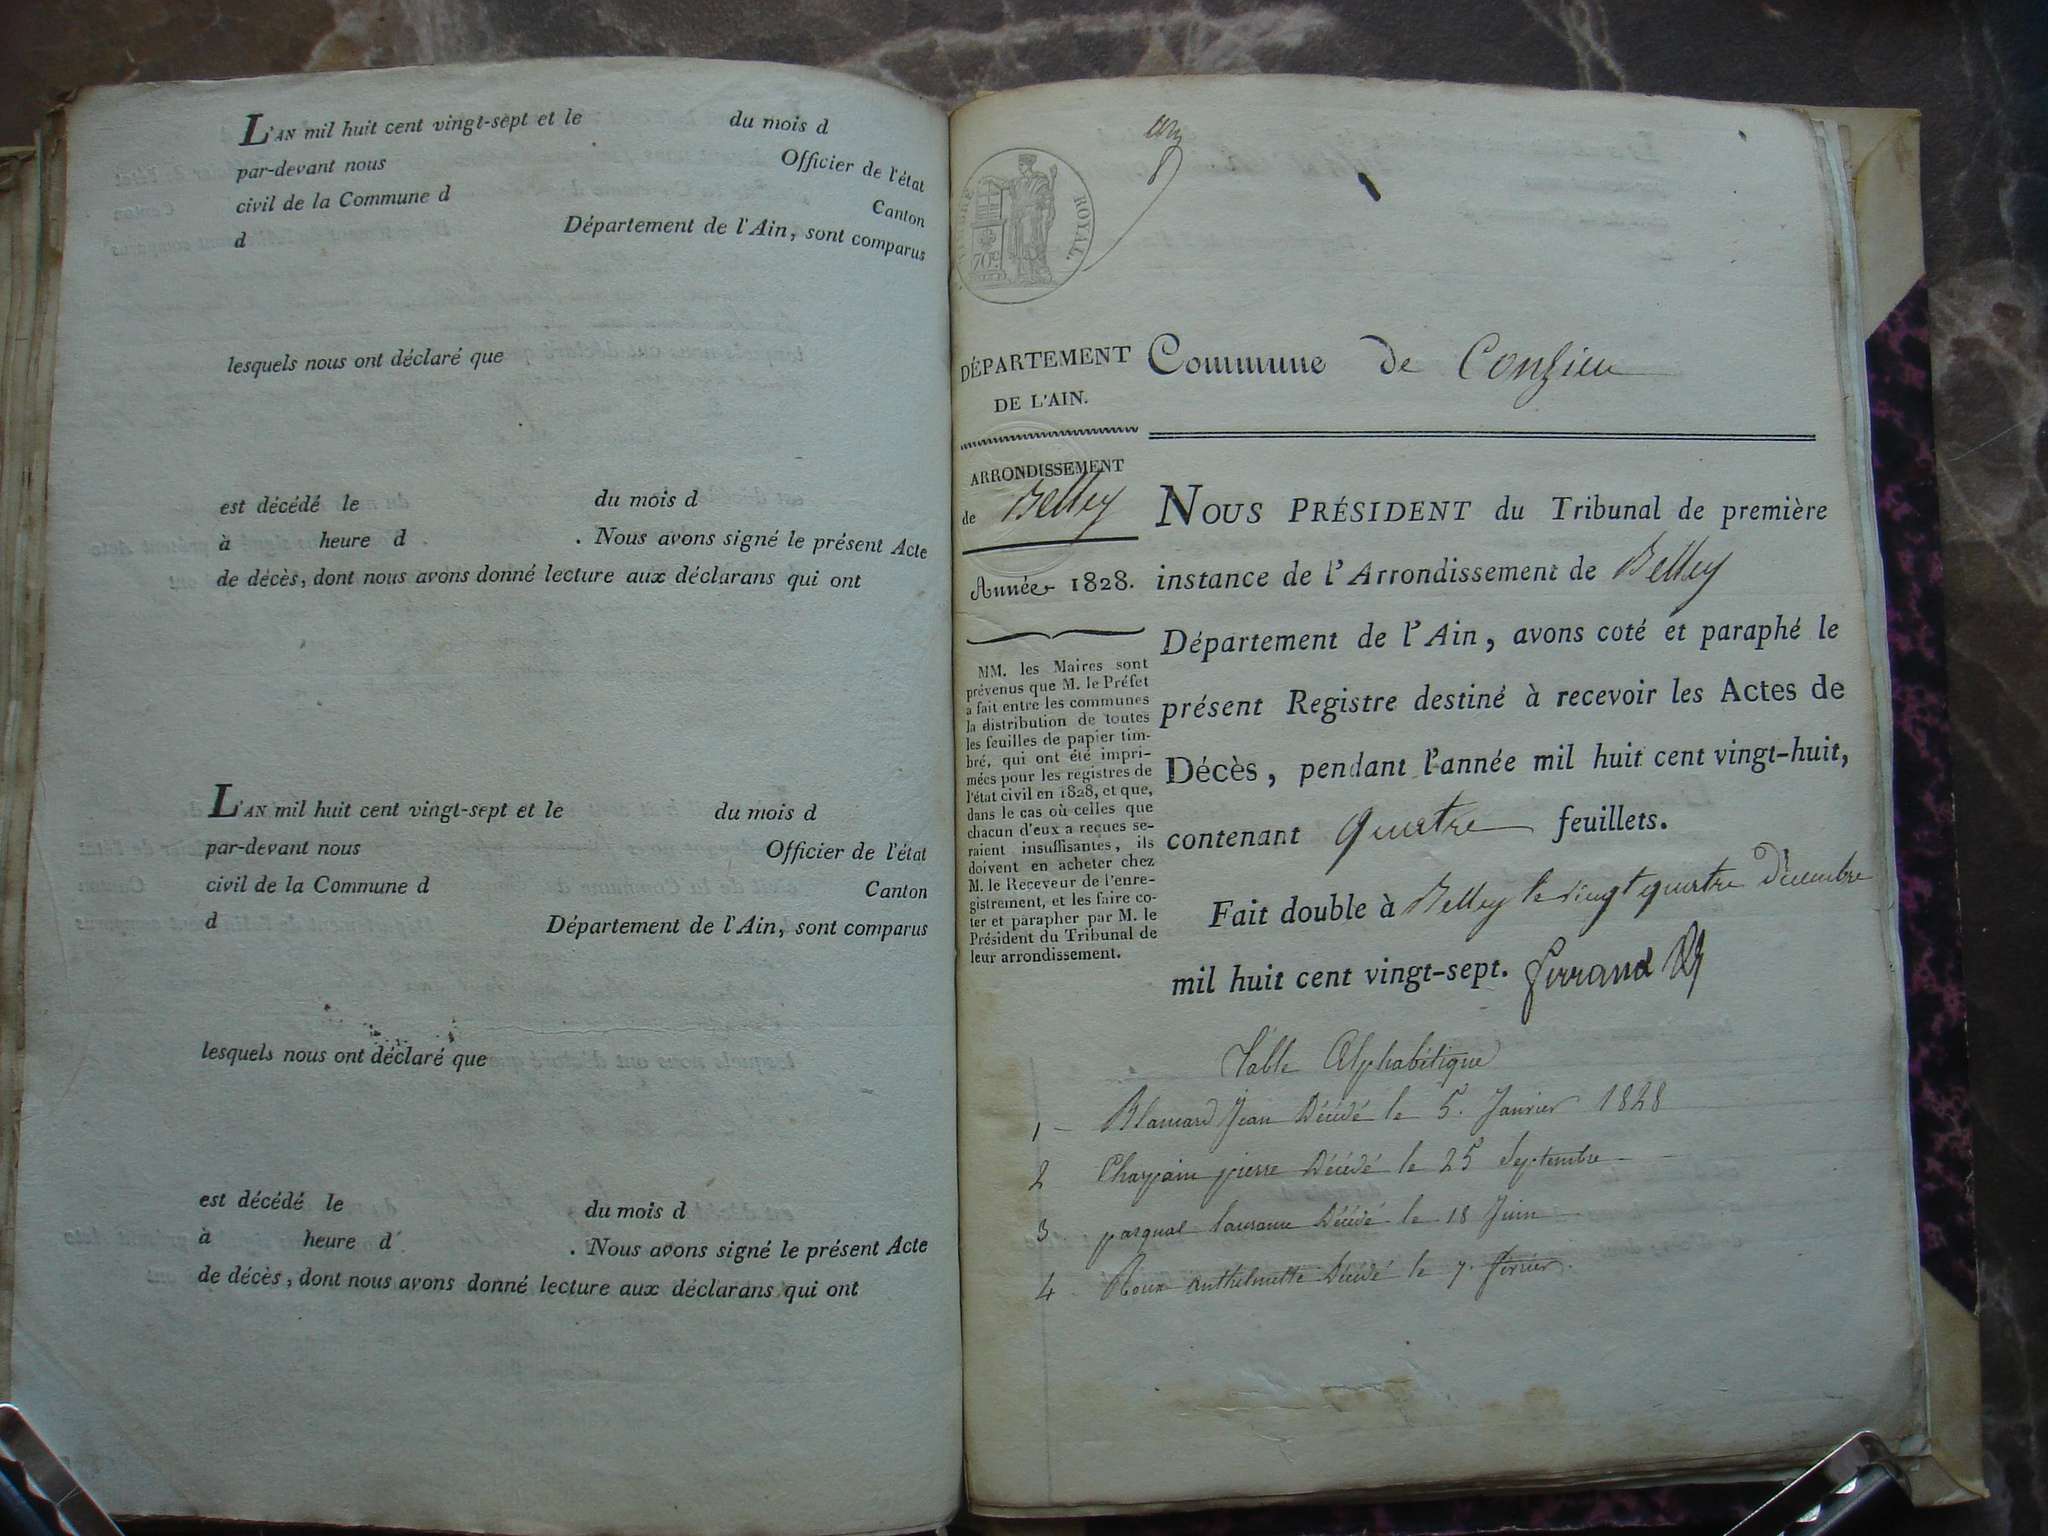 L'AN mil huit cent vingt-sept et le du mois d
par-devant nous Officier de l'état
civil de la Commune d Canton
d Département de l'Ain, sont comparus
lesquels nous ont déclaré que
est décédé le du mois d
à heure d . Nous avons signé le présent Acte
de décès, dont nous avons donné lecture aux déclarans qui ont
L'AN mil huit cent vingt-sept et le du mois d
par-devant nous Officier de l'état
civil de la Commune d Canton
d Département de l'Ain, sont comparus
lesquels nous ont déclaré que
est décédé le du mois d
à heure d . Nous avons signé le présent Acte
de décès, dont nous avons donné lecture aux déclarans qui ont
ROYAL
70c.
DÉPARTEMENT
DE L'AIN.
ARRONDISSEMENT
de Belley
Année 1828.
MM. les Maires sont
prévenus que M. le Préfet
a fait entre les communes
la distribution de toutes
les feuilles de papier tim-
bré, qui ont été impri-
mées pour les registres de
l'état civil en 1828, et que,
dans le cas où celles que
chacun d'eux a reçues se-
raient insuffisantes, ils
doivent en acheter chez
M. le Receveur de l'enre-
gistrement, et les faire co-
ter et parapher par M. le
Président du Tribunal de
leur arrondissement.
Commune de Conzieu
NOUS PRÉSIDENT du Tribunal de première
instance de l'Arrondissement de Belley
Département de l'Ain, avons coté et paraphé le
présent Registre destiné à recevoir les Actes de
Décès, pendant l'année mil huit cent vingt-huit,
contenant quatre feuillets.
Fait double à Belley le vingt quatre Décembre
mil huit cent vingt-sept. Ferrand
Table Alphabétique
1 - Blancard Jean Décédé le 5. Janvier 1828
2 Charpain pierre Décédé le 25 Septembre
3 pasqual Décédé le 18 Juin
4 Roux anthelmette Décédé le 7. février.